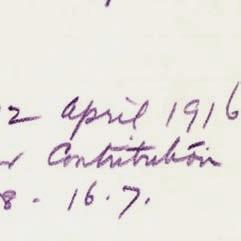 2 April 1916
Contribution
8. 16.7.